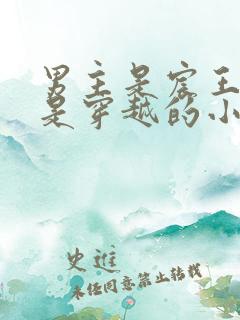 男主是宸王
是穿越的小
史進
未经同意禁止转载